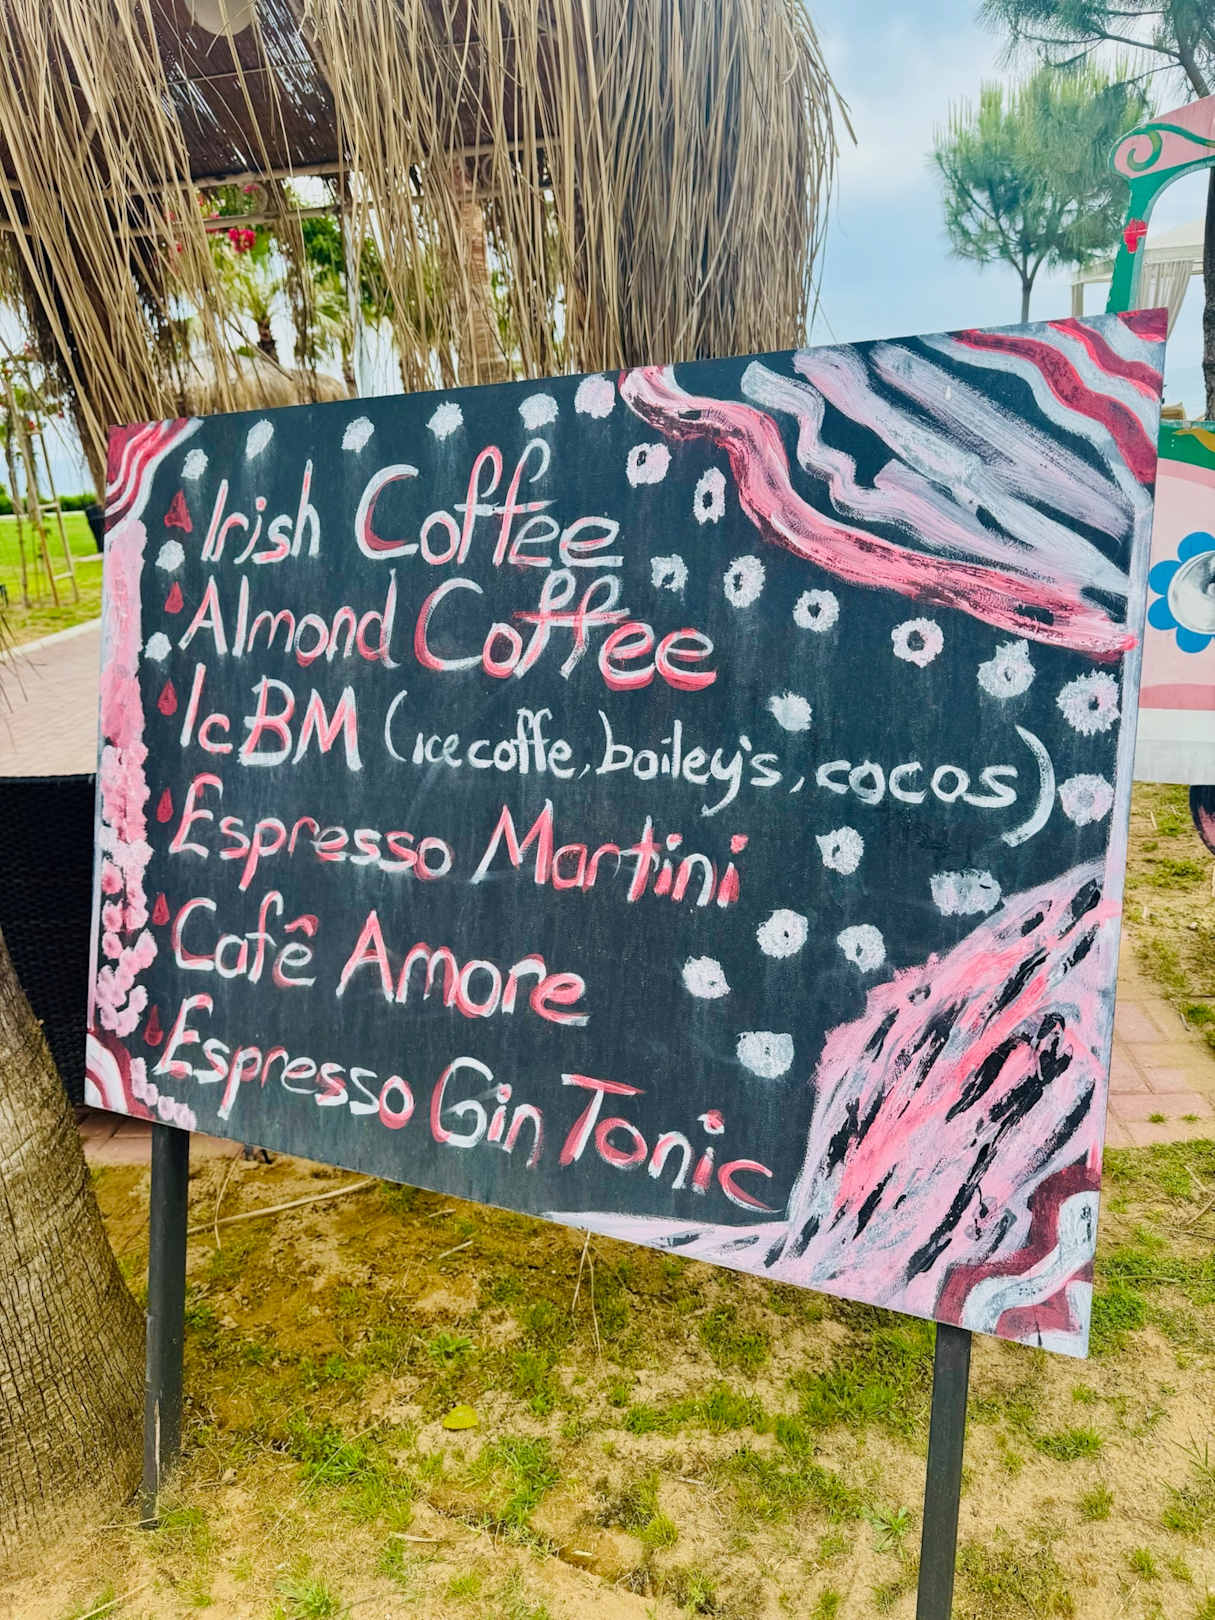 Irish Coffee
Almond Coffee
IcBM (ice coffe, bailey's, cocos)
Espresso Martini
Cafê Amore
Espresso Gin Tonic